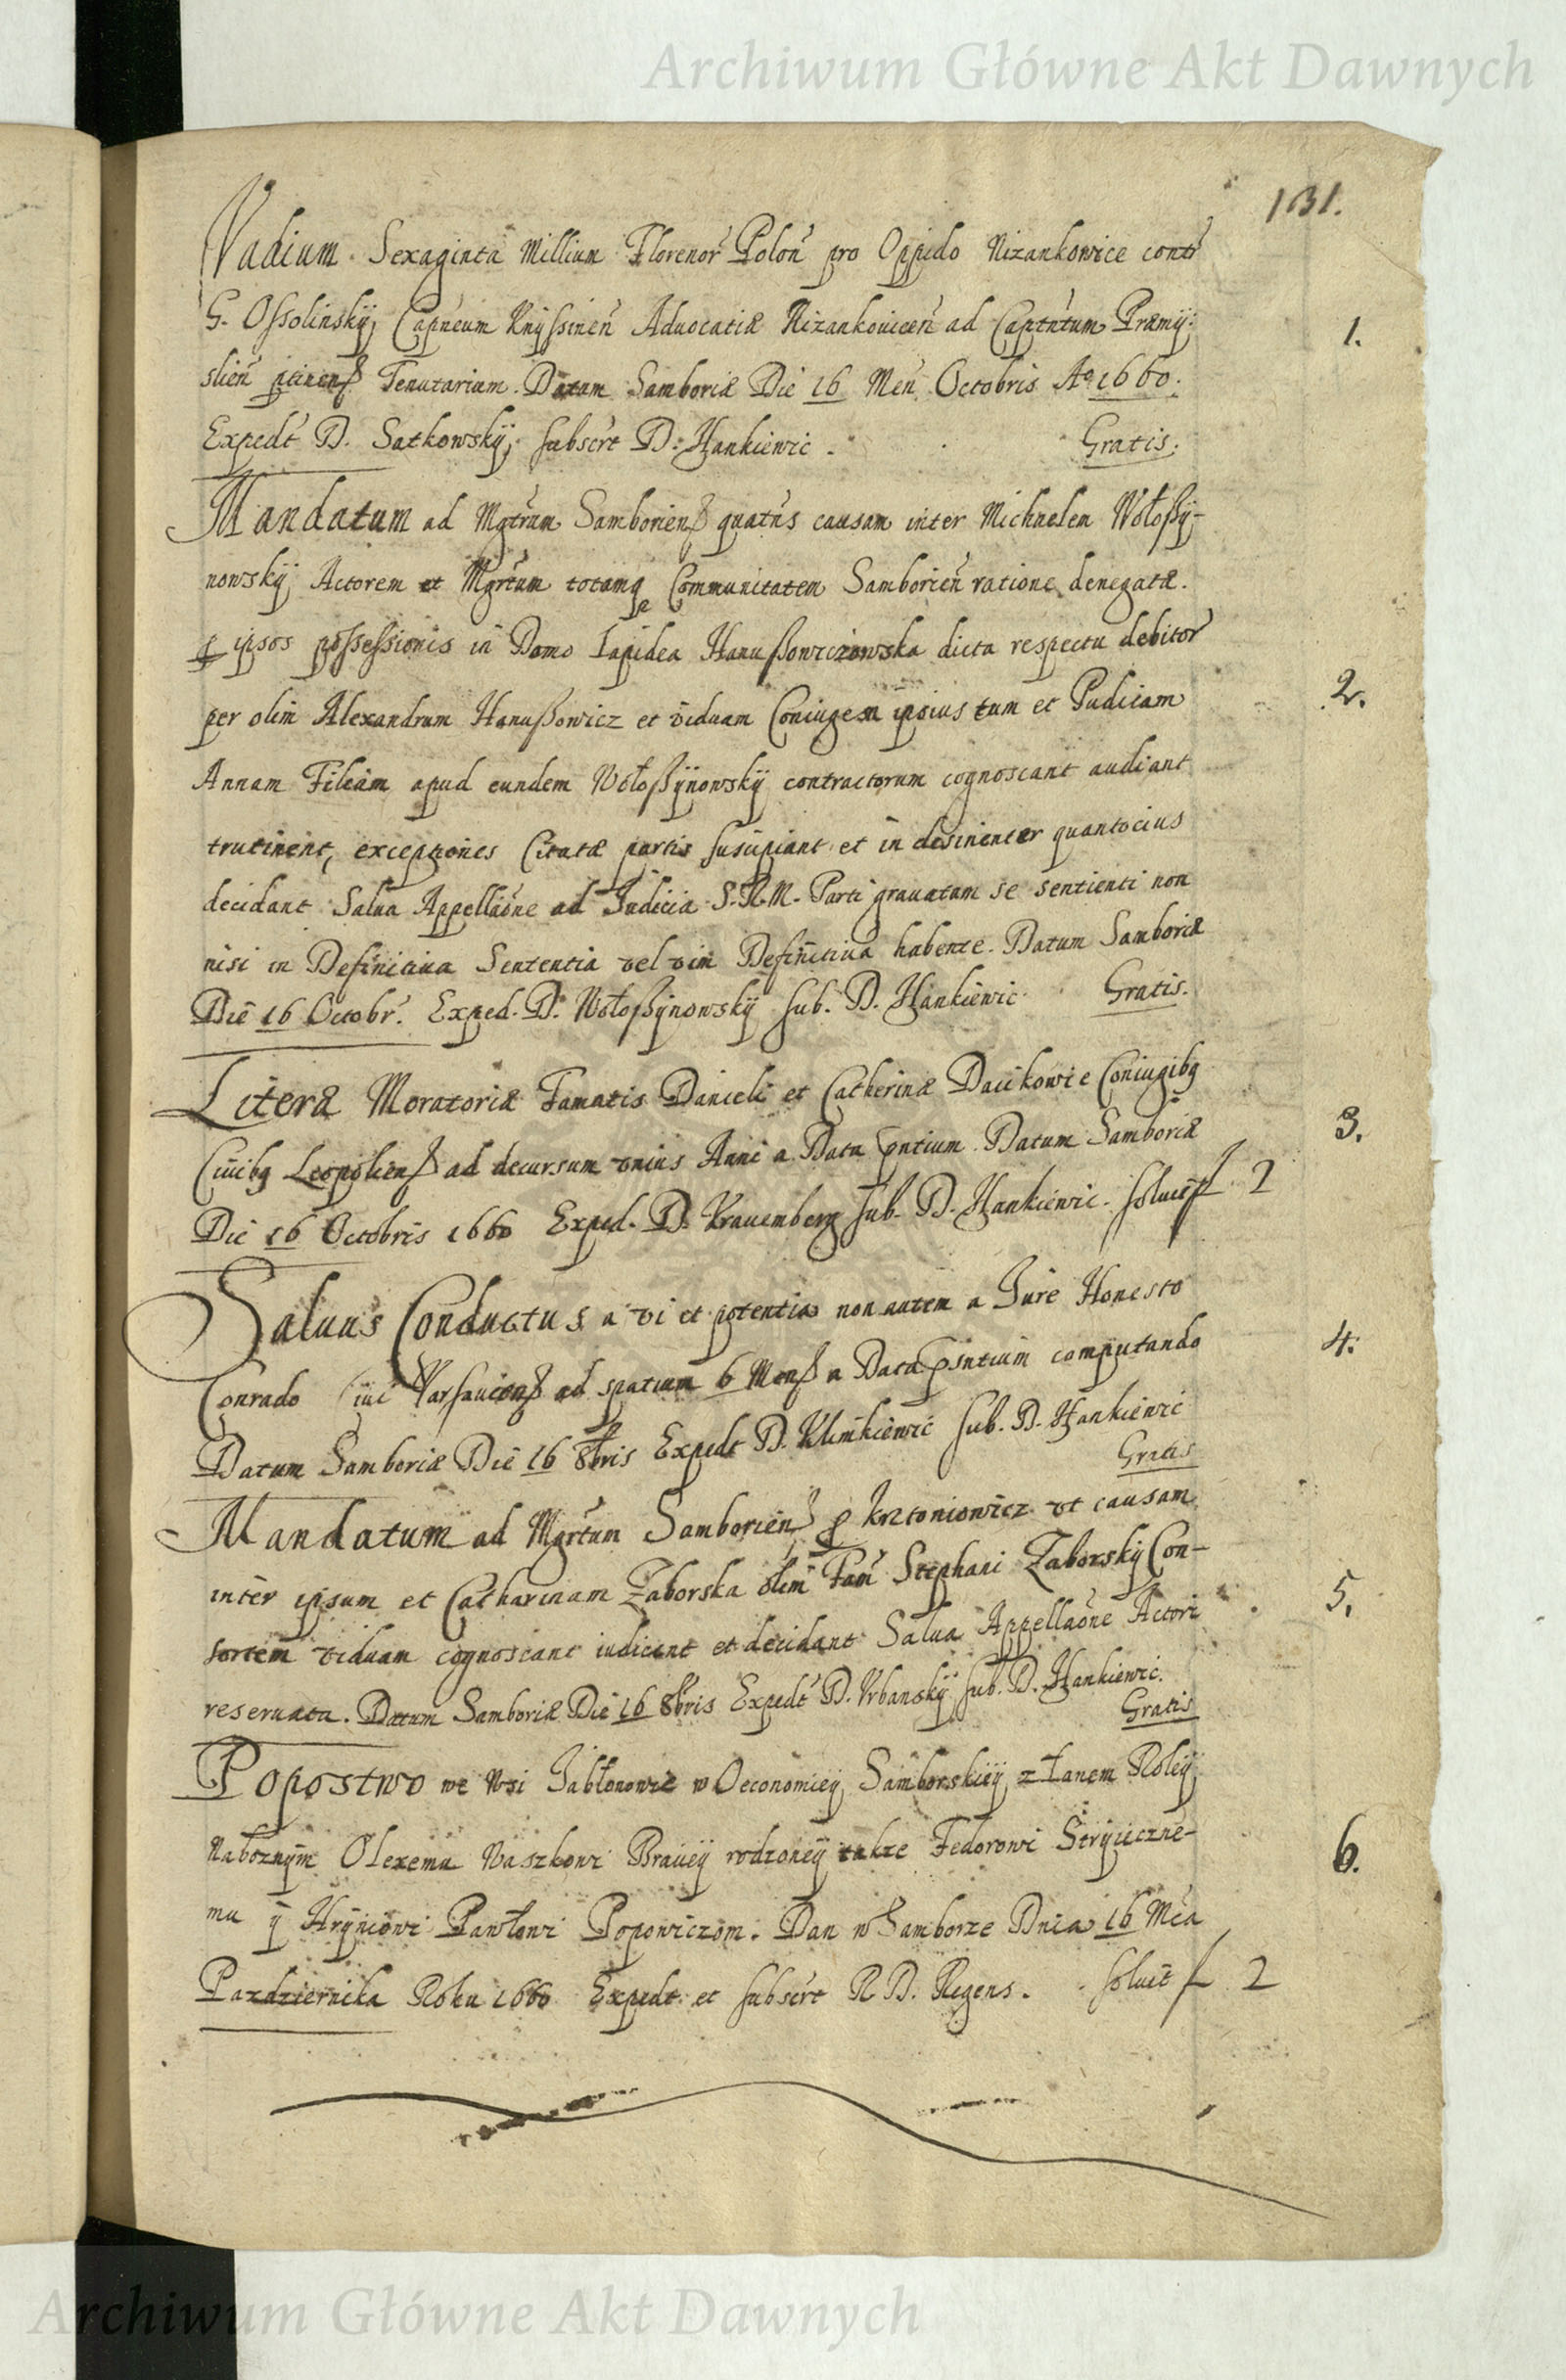 Archiwum Główne Akt Dawnych
131.
Vadium Sexaginta Millium Florenor Polon pro Oppido Nizankowice contr
G. Ossolinskij Capneum Knyssinen Aduocatiæ Nizankouicen ad Captntum Præmij:
slien ptinenß Tenutarium. Datum Samboriæ Die 16 Men Octobris Aº 1660.
1.
Expedt D. Satkowskij subscrt D. Hankiewic. Gratis.
Mandatum ad Mgtrum Samborienß quatns causam inter Michaelem Wołoßy-
nowskij Actorem et Mgrtum totamq Communitatem Samborien ratione denegatæ
ipsos possessionis in Domo Lapidea Hanußowiczowska dicta respectu debitor
2.
per olim Alexandrum Hanußowicz et viduam Coniugem ipsius tum et Pudicam
Annam Filiam apud eundem Wołoßÿnowskij contractorum cognoscant audiant
trutinent, exceptiones Citatæ partis suscipiant et in desinenter quantocius
decidant Salua Appellaone ad Judicia S.R.M. Parti grauatam se sentienti non
nisi in Definitiua Sententia vel vim Definitiua habente. Datum Samboriæ
Die 16 Octobr. Exped. D. Wołoßÿnowskij sub. D. Hankiewic Gratis.
Literæ Moratoriæ Famatis Danieli et Catherinæ Daukowie Coniugibq
3.
Ciuibq Leopolienß ad decursum vnius Anni a Data pntium Datum Samboriæ
Die 16 Octobris 1660 Exped. D. Krauemberg sub. D. Hankiewic. soluit f 2
Saluus Conductus a vi et potentia non autem a Jure Honesto
4.
Conrado Ciui Varsauienß ad spatium 6 Menß a Data psntium computando
Datum Samboriæ Die 16 8bris Expedt D. Klimkiewic sub. D. Hankiewic
Gratis
Mandatum ad Mgrtum Samborien p Krztoniowicz vt causam
inter ipsum et Catharinam Zaborska olim Fam Stephani Zaborskij Con-
5.
sortem viduam cognoscant iudicent et decidant Salua Appellaone Actori
reseruata. Datum Samboriæ Die 16 8bris Expedt D. Vrbanskij sub. D. Hankiewic.
Gratis
Popostwo we Wsi Jabłonowie w Oeconomiey Samborskiey z Łanem Roley
Naboznÿm Olexemu Waszkowi Braciey rodzoney takze Fedorowi Stryieczne-
6.
mu ÿ Hryńiowi Pawłowi Popowiczom. Dan w Samborze Dnia 16 Mca
Pazdziernika Roku 1660 Expedt et subscrt R D. Regens. soluit f 2
Archiwum Główne Akt Dawnych